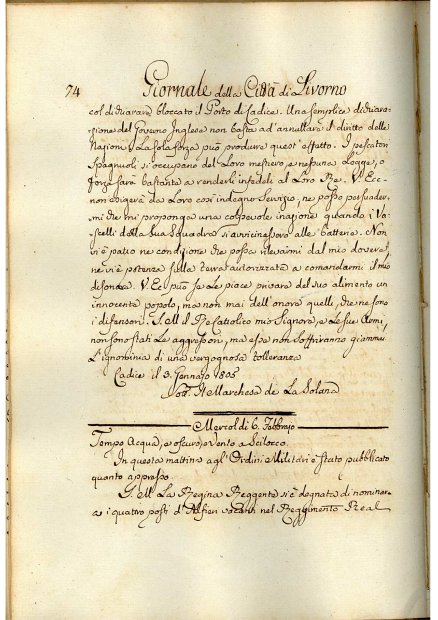 74 Giornale della Città di Livorno
col dichiarare bloccato il Porto di Cadice. Una semplice dichiara-
zione del Governo Inglese non basta ad'annullare il diritto delle
Nazioni. La sola forza può produrre quest'effetto. I pescatori
Spagnuoli si occupano del Loro mestiero, e nessuna Legge, o
forza sarà bastante a renderli infedeli al Loro Re. V. Ecc.
non esigerà da Loro così indegno Servizio, ne posso persuader-
mi che mi proponga una colpevole inazione quando i Va-
scelli della sua Squadra si avvicinassero alle batterie. Non
vi è patto ne condizione che possa rilevarmi dal mio dovere,
ne vi è potenza sulla terra autorizzata a comandarmi il mio
disonore. V. Ec. può se Le piace privare del suo alimento un
innocente popolo, ma non mai dell'onore quelli, che ne sono
i difensori. S. M. il Re Cattolico mio Signore, e Le sue Armi,
non sono stati Le aggressori, ma essa non soffriranno giammai
L'ignominia di una vergognosa tolleranza
Cadice il 3. Gennajo 1805
Il Marchese de La Solana
Mercoldì 6. Febbrajo
Tempo Acqua, e oscuro, e vento a Scilocco.
In questa mattina agl'Ordini Militari è stato pubblicato
quanto appresso
S. M. La Regina Reggente si è degnata di nominar-
e i quattro posti d'Alfieri vacanti nel Reggimento Real